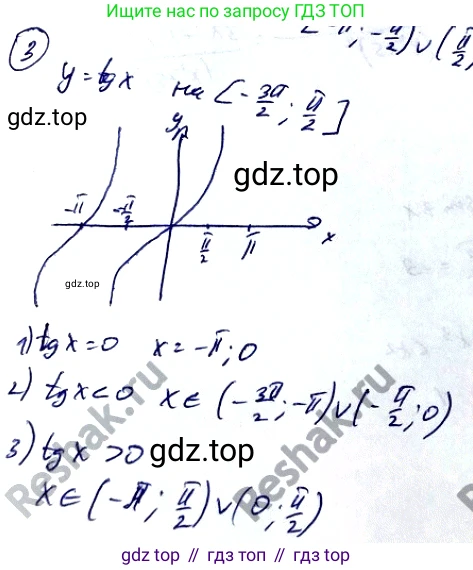 Находи по запросу ГДЗ ТОП
[-π; -π/2) ∪ (π/2
3
y = tg x на [-3π/2; π/2]
y
gdz.top
-π -π/2 π/2 π x
gdz.top
1) tg x = 0 x = -π; 0
2) tg x < 0 x ∈ (-3π/2; -π) ∪ (-π/2; 0)
3) tg x > 0
gdz.top
x ∈ (-π; π/2) ∪ (0; π/2)
Reshak.ru
Reshak.ru
gdz.top // гдз.топ // gdz.top // гдз.топ